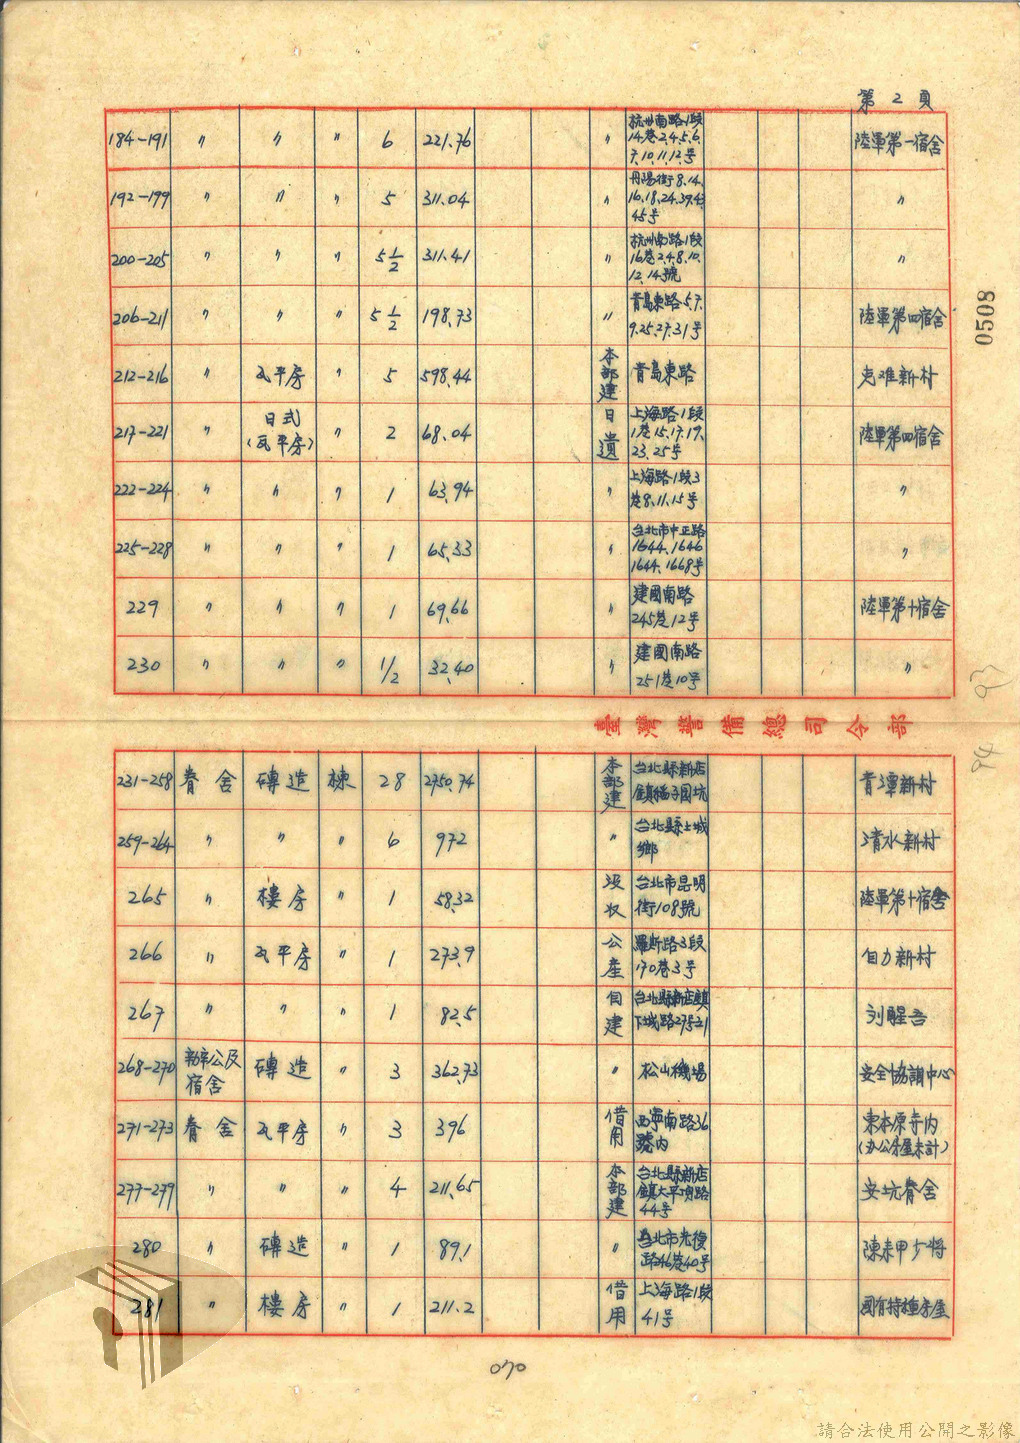 第 2 頁
184-191 〃 〃 〃 6 221.76 〃 杭州南路1段14巷2.4.5.6.7.10.11.12.号 陸軍第一宿舍
192-199 〃 〃 〃 5 311.04 〃 丹陽街8.14.16.18.24.39.43.45号 〃
200-205 〃 〃 〃 5 1/2 311.41 〃 杭州南路1段16巷2.4.8.10.12.14號 〃
206-211 〃 〃 〃 5 1/2 198.73 〃 青島東路5.7.9.25.27.31号 陸軍第四宿舍
212-216 〃 瓦平房 〃 5 598.44 本部建 青島東路 克难新村
217-221 〃 日式(瓦平房) 〃 2 68.04 日遺 上海路1段1巷15.17.19.23.25号 陸軍第四宿舍
222-224 〃 〃 〃 1 63.94 〃 上海路1段3巷8.11.15号 〃
225-228 〃 〃 〃 1 65.33 〃 台北市中正路1644.1646 1644.1668号 〃
229 〃 〃 〃 1 69.66 〃 建國南路245巷12号 陸軍第十宿舍
230 〃 〃 〃 1/2 32.40 〃 建國南路251巷10号 〃
臺灣警備總司令部
231-258 眷舍 磚造 棟 28 2750.74 本部建 台北縣新店鎮 青潭新村
259-264 〃 〃 〃 6 972 〃 台北縣土城鄉 清水新村
265 〃 樓房 〃 1 58.32 没收 台北市昆明街108號 陸軍第十宿舍
266 〃 瓦平房 〃 1 273.9 公產 羅斯路3段170巷3号 自力新村
267 〃 〃 〃 1 82.5 自建 台北縣新店鎮下城路27号21 刘醒吾
268-270 辦公及宿舍 磚造 〃 3 362.73 〃 松山機場 安全協調中心
271-273 眷舍 瓦平房 〃 3 396 借用 西寧南路36號內 東本原寺内(办公房屋未計)
277-279 〃 〃 〃 4 211.65 本部建 台北縣新店鎮太平頂路44号 安坑眷舍
280 〃 磚造 〃 1 89.1 〃 台北市光復路246巷40号 陳未甲少將
281 〃 樓房 〃 1 211.2 借用 上海路1段41号 國有特種房屋
0508
93
94
070
請合法使用公開之影像